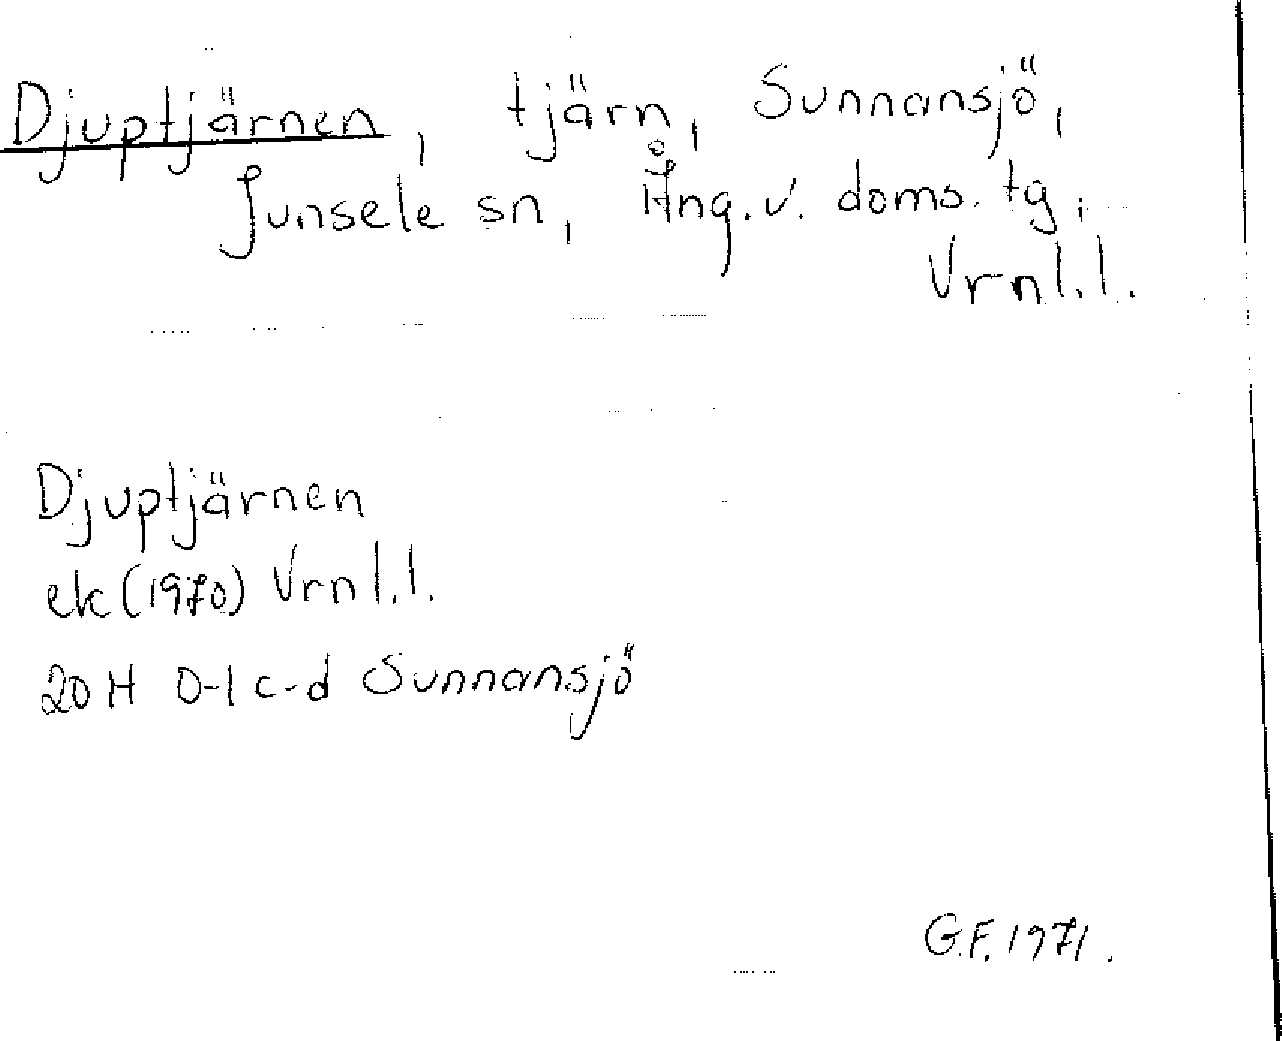 Djuptjärnen, tjärn, Sunnansjö,
Junsele sn, Ång. v. doms. tg,
Vrnl.l.
Djuptjärnen
ek (1970) Vrnl.l.
20H 0-1 c-d Sunnansjö
G.F. 1971.